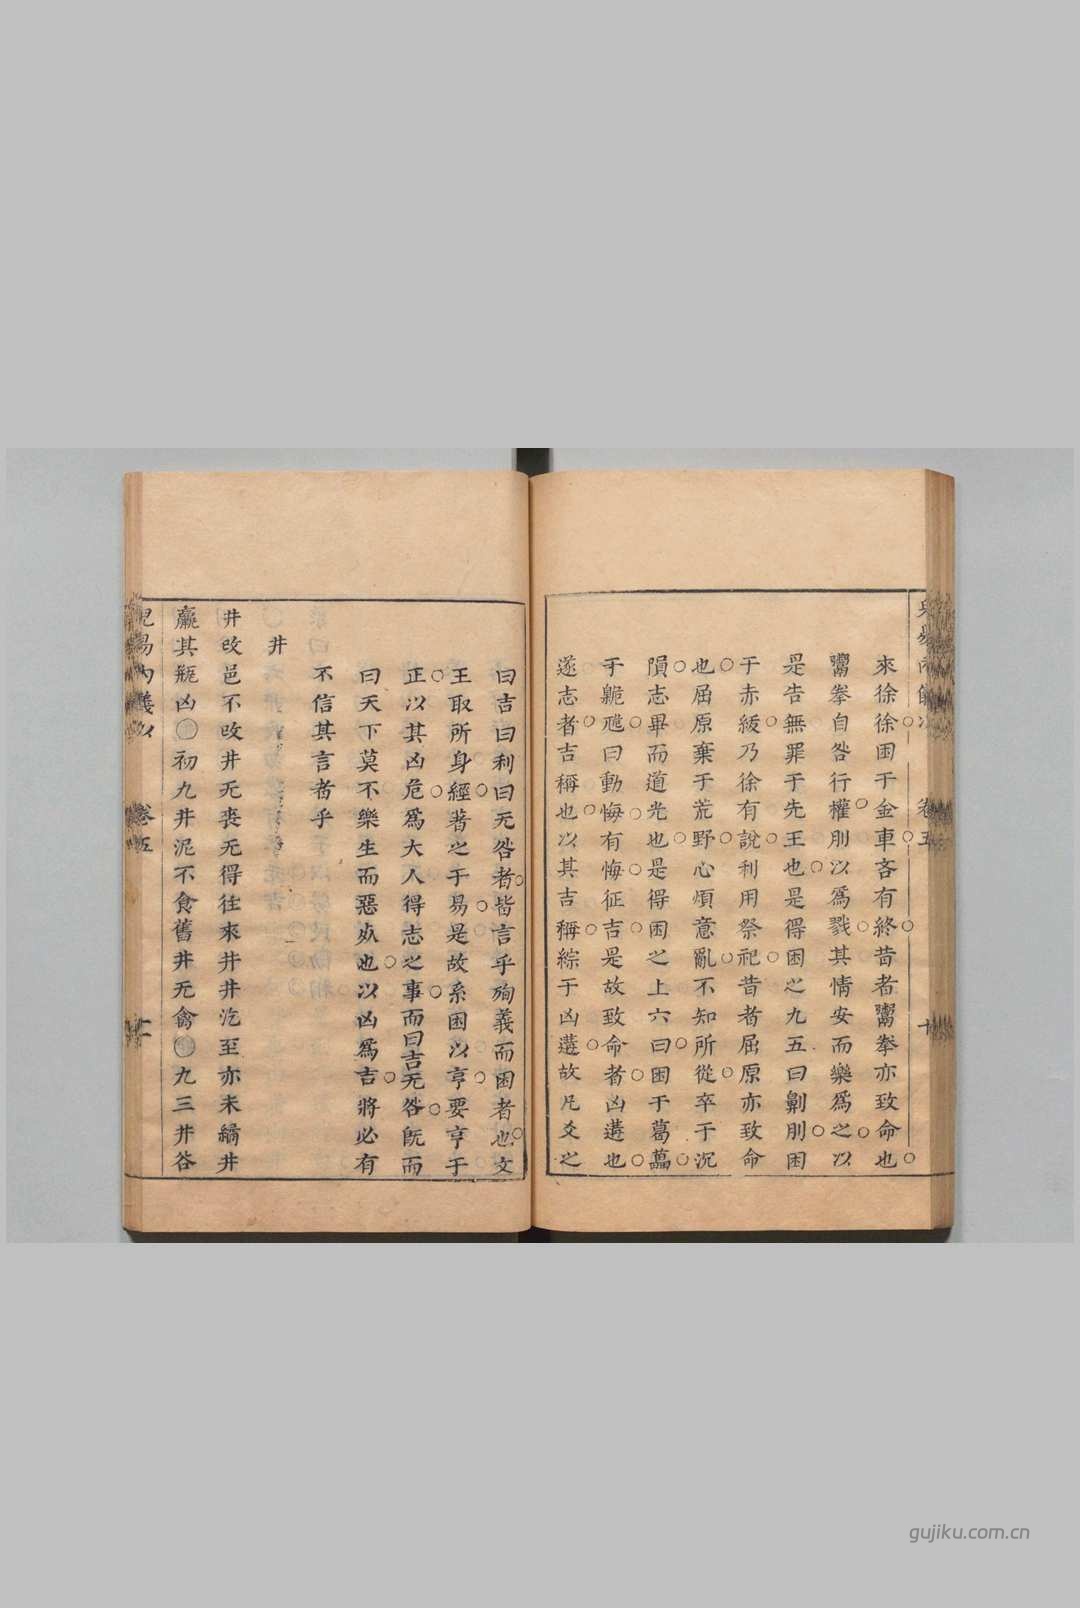 來徐徐困于金車吝有終昔者鬻拳亦致命也
鬻拳自咎行權刖以為戮其情安而樂為之以
是告無罪于先王也是得困之九五曰劓刖困
于赤紱乃徐有說利用祭祀昔者屈原亦致命
也屈原棄于荒野心煩意亂不知所從卒于沉
隕志畢而道光也是得困之上六曰困于葛藟
于臲卼曰動悔有悔征吉是故致命者凶遘也
遂志者吉稱也以其吉稱綜于凶遘故凡爻之
曰吉曰利曰无咎者皆言乎殉義而困者也文
王取所身經著之于易是故系困以亨要亨于
正以其凶危爲大人得志之事而曰吉无咎旣而
曰天下莫不樂生而惡死也以凶爲吉將必有
不信其言者乎
井
井改邑不改井无喪无得往來井井汔至亦未繘井
羸其瓶凶 初九井泥不食舊井无禽 九三井谷
兒易內儀以 卷五
gujiku.com.cn